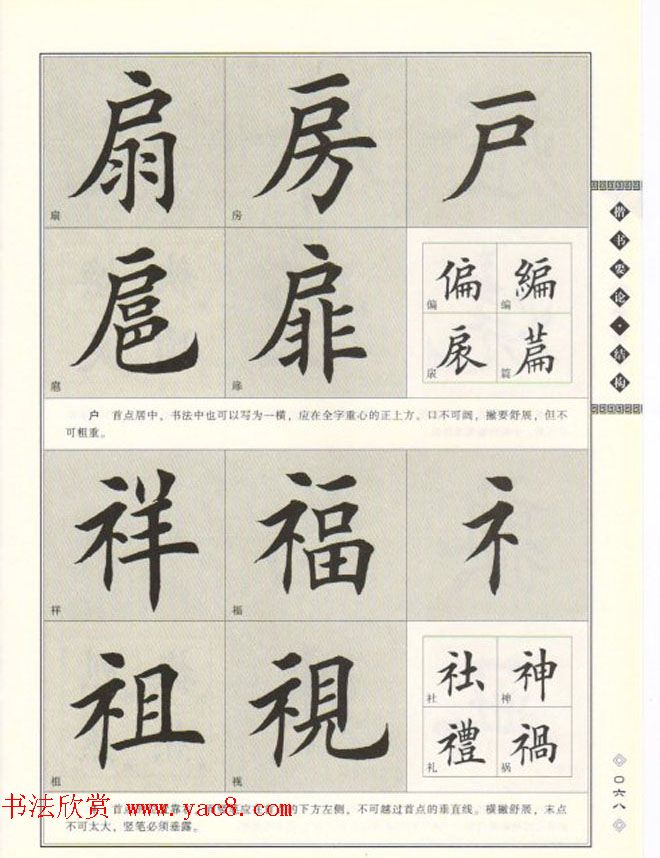 扇 房 戸
扇 房
扈 扉 偏 編
偏 编
扆 篇
扆 篇
户 首点居中，书法中也可以写为一横，应在全字重心的正上方。口不可阔，撇要舒展，但不
可粗重。
祥 福 礻
祥 福
祖 視 社 神
社 神
禮 禍
礼 祸
祖 视
首点
的下方左侧，不可越过首点的垂直线。横撇舒展，末点
不可太大，竖笔必须垂露。
书法欣赏 www.yac8.com
楷书要论·结构
〇六八